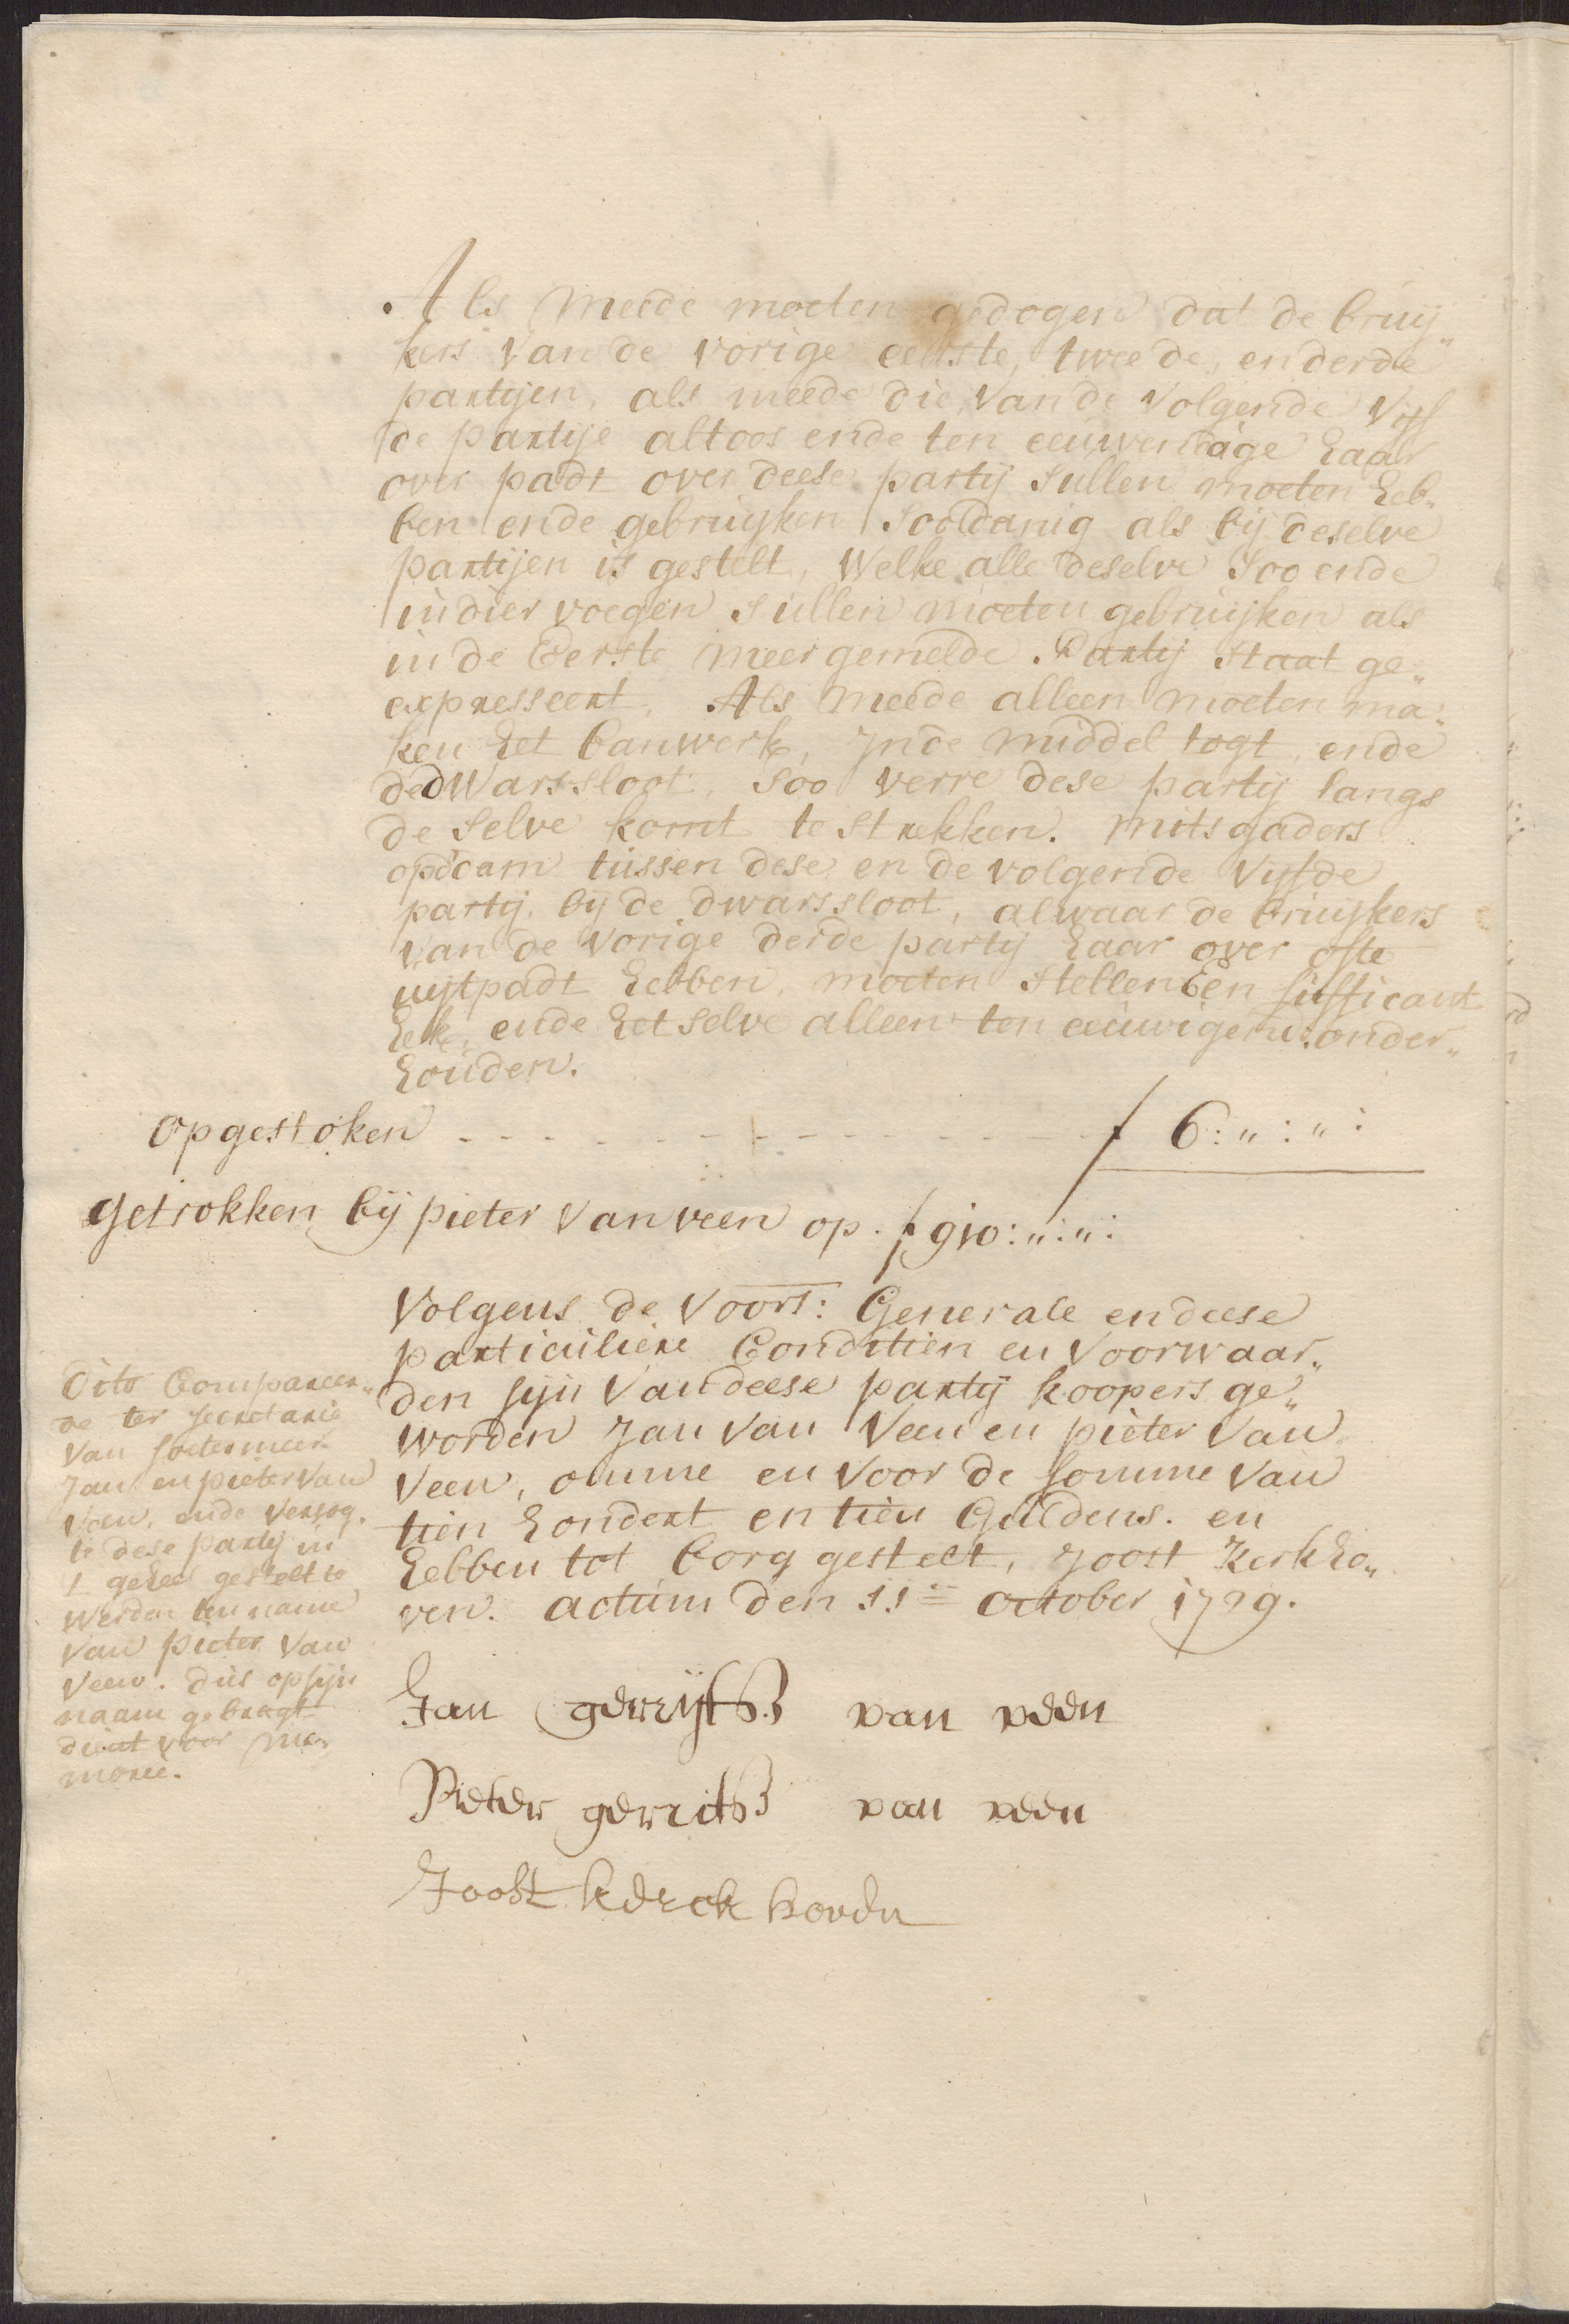 Als meede moeten gedogen dat de bruij„
kers van de vorige eerste, tweede, en derde
partijen, als meede die, van de volgende vijf
de partije altoos ende ten eeuwendage haar
over padt over deese partij sullen moeten heb„
ben ende gebruijken sooldanig als bij deselve
partijen is gestelt, Welke alle deselve soo ende
indier voegen sullen moeten gebruijken als
in de Eerste meergemelde Partij staat ge„
expresseert, Als meede alleen moeten ma„
ken het banwerk, Inde middel togt, ende
de dWarssloot, soo verre dese partij langs
de selve komt te strekken. mitsgaders
opdam tussen dese en de volgende vijfde
partij bij de dwarssloot, alwaar de bruijkers
van de vorige derde partij haar over ofte
uijtpadt hebben, moeten stellen Een sufficant
hek, ende het selve alleen ten eeuwigen onder„
houden.
opgestoken - - - - - - - - - - ƒ 6:„:„:
Getrokken bij pieter van veen op. ƒ 910:„:„:
Volgens de voors: Generale en deese
particuliere Conditien en voorwaar„
den sijn van deese partij koopers ge„
worden Jan van Veen en pieter van
Veen, omme en voor de somme van
tien hondert en tien Guldens. en
hebben tot borg gestelt, Joost Kerkho„
ven. actum den 11e october 1729.
Dito Compareer„
de ter secretarie
van soetermeer
Jan en pieter van
Veen, ende versog.
te dese partij in
't geheel gestelt te
werden ten name
van pieter van
Veen. dus op sijn
naam gebragt
dient voor me„
morie.
Jan gerrijtsz van veen
Pieter gerritsz van veen
Joost kerck hoven